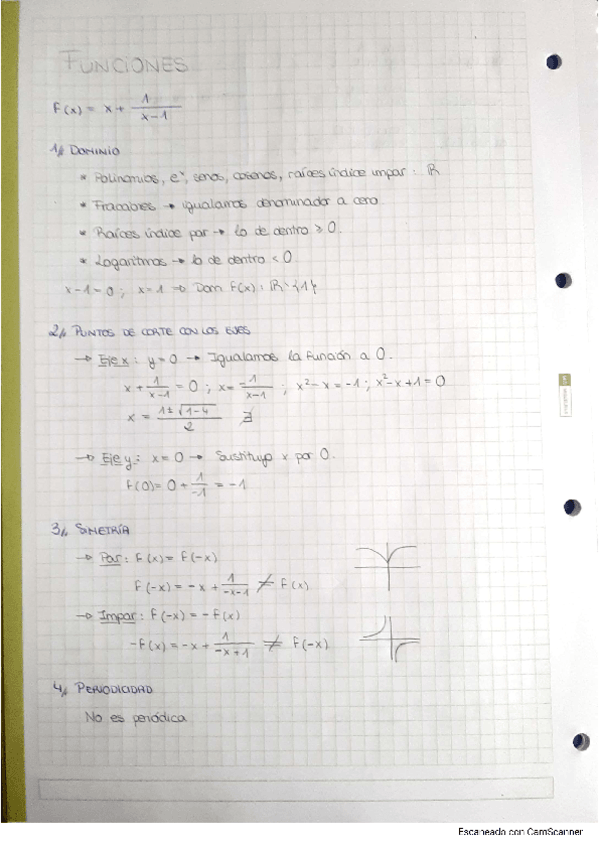 FUNCIONES
F(x) = x + 1/(x-1)
1// DOMINIO
* Polinomios, eˣ, senos, cosenos, raíces índice impar : ℝ
* Fracciones → igualamos denominador a cero.
* Raíces índice par → lo de dentro ≥ 0.
* Logaritmos → lo de dentro < 0
x-1=0 ; x=1 ⇒ Dom F(x) : ℝ-{1}
2// PUNTOS DE CORTE CON LOS EJES
→ Eje x : y=0 → Igualamos la función a 0.
x + 1/(x-1) = 0 ; x = -1/(x-1) ; x²-x = -1 ; x²-x+1=0
x = (1±√(1-4))/2 ∄
→ Eje y : x=0 → Sustituyo x por 0.
F(0) = 0 + 1/-1 = -1
3// SIMETRÍA
→ Par : F(x) = F(-x)
F(-x) = -x + 1/(-x-1) ≠ F(x)
→ Impar : F(-x) = -F(x)
-F(x) = -x + 1/(-x+1) ≠ F(-x)
4// PERIODICIDAD
No es periódica
Escaneado con CamScanner